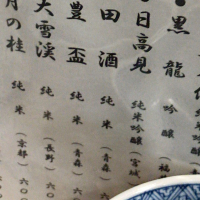 黒龍 吟醸 (福
日高見 純米吟醸 (宮城
田酒 純米 (青森)
豊盃 純米 (青森)
大雪渓 純米 (長野) 六〇
月の桂 純米 (京都) 六〇